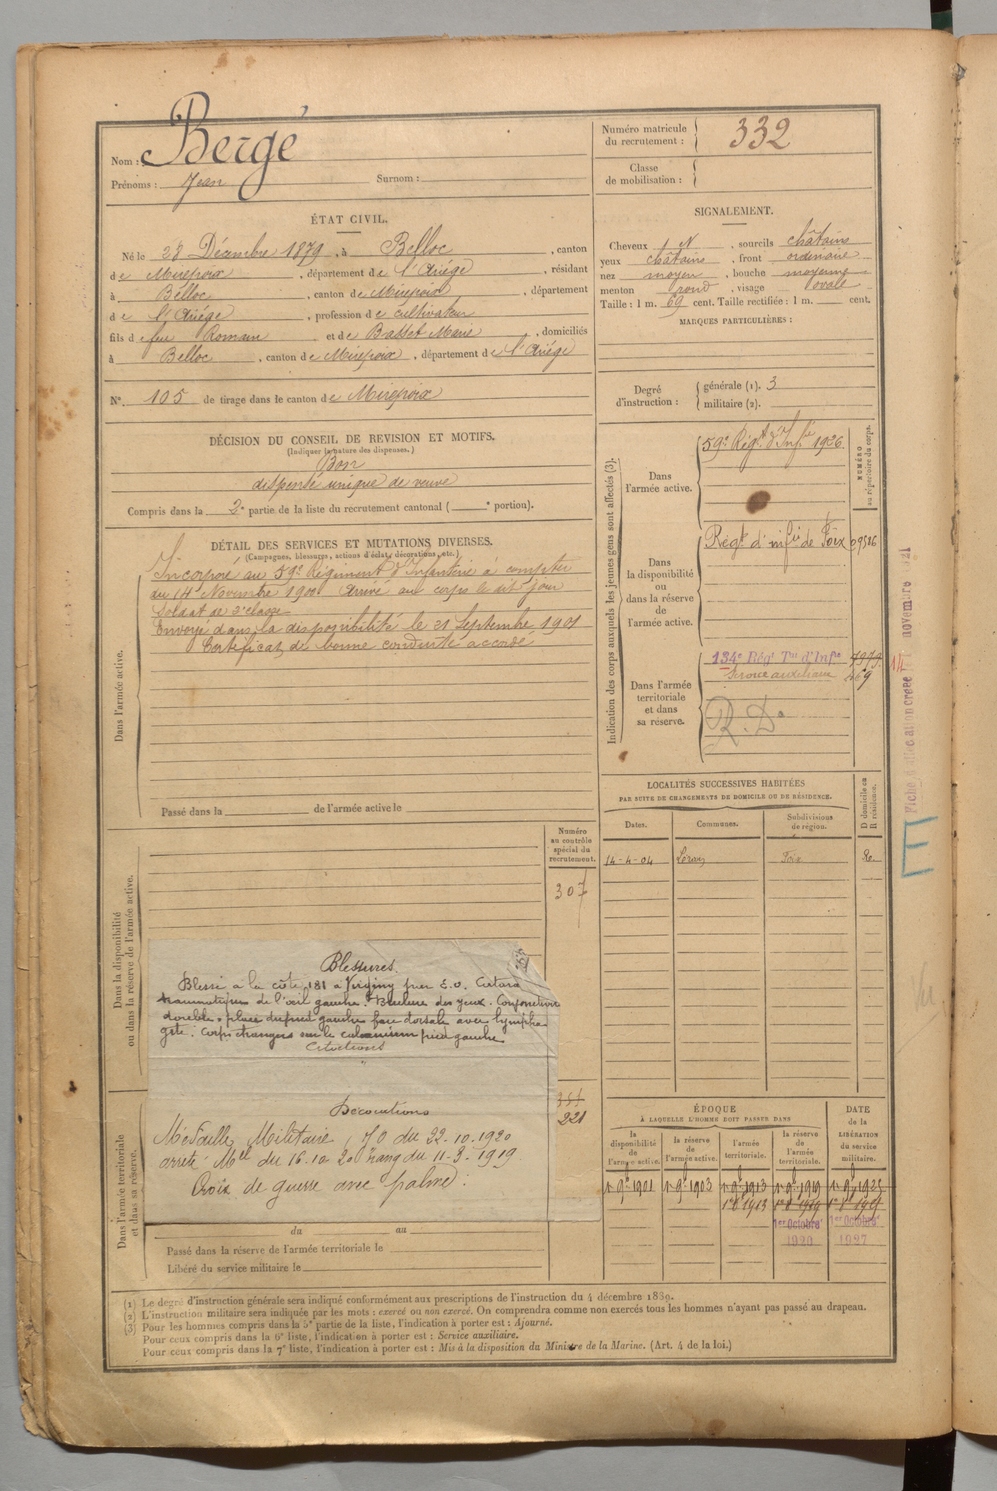 Nom : Bergé
Prénoms : Jean Surnom :
Numéro matricule du recrutement : 332
Classe de mobilisation :
ÉTAT CIVIL.
Né le 28 Décembre 1879, à Belloc, canton
de Mirepoix, département de l'Ariége, résidant
à Belloc, canton de Mirepoix, département
de l'Ariége, profession de cultivateur
fils de feu Romain et de Basset Marie, domiciliés
à Belloc, canton de Mirepoix, département de l'Ariége
N° 105 de tirage dans le canton de Mirepoix
SIGNALEMENT.
Cheveux ch N, sourcils châtains
yeux châtains, front ordinaire
nez moyen, bouche moyenne
menton rond, visage ovale
Taille : 1 m. 69 cent. Taille rectifiée : 1 m. cent.
MARQUES PARTICULIÈRES :
Degré d'instruction : générale (1). 3
militaire (2).
DÉCISION DU CONSEIL DE REVISION ET MOTIFS.
(Indiquer la nature des dispenses.)
Bon
dispensé unique de veuve
Compris dans la 2e partie de la liste du recrutement cantonal ( e portion).
DÉTAIL DES SERVICES ET MUTATIONS DIVERSES.
(Campagnes, blessures, actions d'éclat, décorations, etc.)
Dans l'armée active.
Incorporé au 59e Régiment d'Infanterie à compter
du 14 Novembre 1900 Arrivé au corps le dit jour
Soldat de 2e classe
Envoyé dans la disponibilité le 21 Septembre 1901
Certificat de bonne conduite accordé
Passé dans la de l'armée active le
Indication des corps auxquels les jeunes gens sont affectés (3).
NUMÉRO au répertoire du corps.
Dans l'armée active.
59e Régt d'Infie 1926
Dans la disponibilité ou dans la réserve de l'armée active.
Régt d'infie de Foix 09526
Dans l'armée territoriale et dans sa réserve.
134e Régt Tal d'Infie
Service auxiliaire
R. D.
14 novembre 1921
E
LOCALITÉS SUCCESSIVES HABITÉES
PAR SUITE DE CHANGEMENTS DE DOMICILE OU DE RÉSIDENCE.
Dates. Communes. Subdivisions de région. D domicile ou R résidence.
14-4-04 Foix R.
Dans la disponibilité ou dans la réserve de l'armée active.
Numéro au contrôle spécial du recrutement.
307
Blessures.
Blessé à la côte 181 à Virginy par E.O. Cataracte
traumatique de l'œil gauche. Brulure des yeux. Conjonctivite
double. plaie du pied gauche face dorsale avec lymphan
gite. corps étrangers sur le calcaneum pied gauche
Citations
Décorations
Médaille Militaire, JO du 22.10.1920
arrêté Mel du 16.10.20 rang du 11-3-1919.
Croix de guerre avec palme.
221
Dans l'armée territoriale et dans sa réserve.
du au
Passé dans la réserve de l'armée territoriale le
Libéré du service militaire le
ÉPOQUE
À LAQUELLE L'HOMME DOIT PASSER DANS
DATE de la LIBÉRATION du service militaire.
la disponibilité de l'armée active. la réserve de l'armée active. l'armée territoriale. la réserve de l'armée territoriale.
1er 9bre 1901 1er 9bre 1903 1er 9bre 1913 1er 9bre 1919 1er 9bre 1925
1er Octobre 1920 1er Octobre 1927
(1) Le degré d'instruction générale sera indiqué conformément aux prescriptions de l'instruction du 4 décembre 1889.
(2) L'instruction militaire sera indiquée par les mots : exercé ou non exercé. On comprendra comme non exercés tous les hommes n'ayant pas passé au drapeau.
(3) Pour les hommes compris dans la 5e partie de la liste, l'indication à porter est : Ajourné.
Pour ceux compris dans la 6e liste, l'indication à porter est : Service auxiliaire.
Pour ceux compris dans la 7e liste, l'indication à porter est : Mis à la disposition du Ministre de la Marine. (Art. 4 de la loi.)